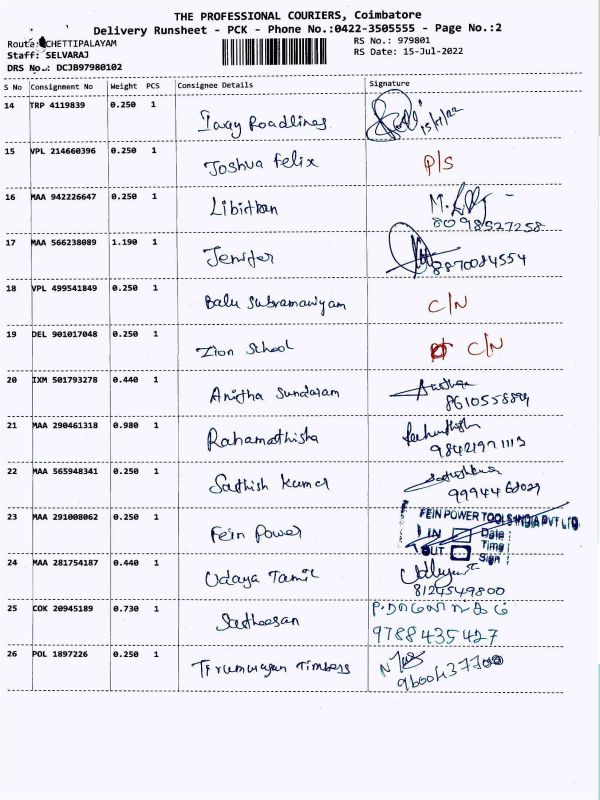 THE PROFESSIONAL COURIERS, Coimbatore
Delivery Runsheet - PCK - Phone No.:0422-3505555 - Page No.:2
Route: CHETTIPALAYAM
RS No.: 979801
Staff: SELVARAJ
RS Date: 15-Jul-2022
DRS No.: DCJB97980102
S No Consignment No Weight PCS Consignee Details Signature
14 TRP 4119839 0.250 1 Roadlines 15/7/22
15 VPL 214660396 0.250 1 Joshua Felix P/S
16 MAA 942226647 0.250 1 M.
8098527258
17 MAA 566238089 1.190 1 Jenifer 8870084554
18 VPL 499541849 0.250 1 Balu Subramaniyam C/N
19 DEL 901017048 0.250 1 Zion School C/N
20 IXM 501793278 0.440 1 Anitha Sundaram
21 MAA 290461318 0.980 1 Rahamathisha
22 MAA 565948341 0.250 1 Sathish Kumar
23 MAA 291008062 0.250 1 Fein Power FEIN POWER TOOLS INDIA PVT LTD
IN Date :
OUT Time :
Sign :
24 MAA 281754187 0.440 1 Udaya Tamil
8124549800
25 COK 20945189 0.730 1 Satheesan
9788435427
26 POL 1897226 0.250 1 Tirumurugan Timbers